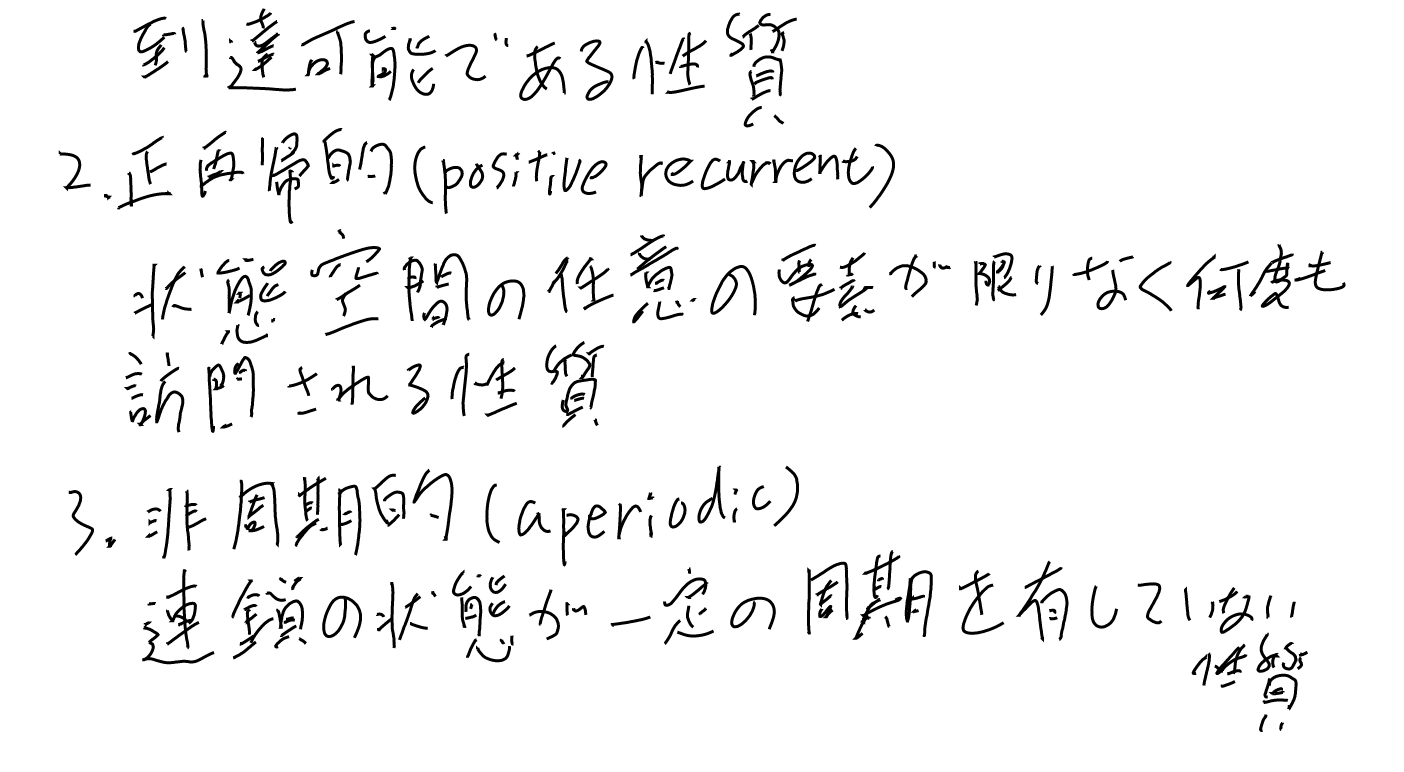 到達可能である性質
2.正再帰的(positive recurrent)
状態空間の任意の要素が限りなく何度も
訪問される性質
3.非周期的(aperiodic)
連鎖の状態が一定の周期を有していない
性質